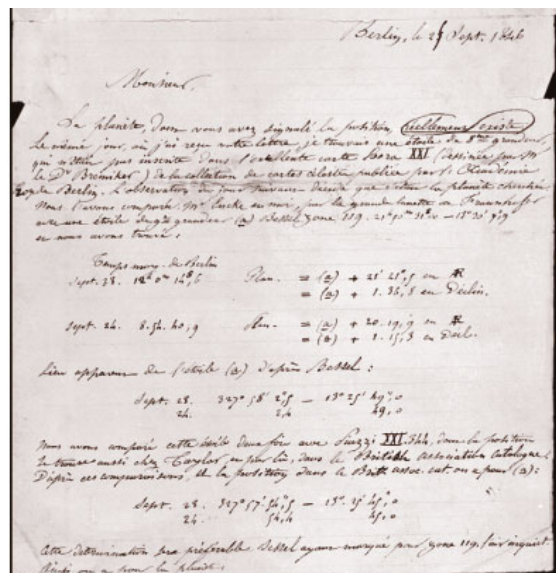 Berlin, le 25 Sept. 1846
Monsieur,
La planète, dont vous avez signalé la position, réellement existe
Le même jour, où j'ai reçu votre lettre, je trouvais une étoile de 8me grandeur,
qui n'était pas inscrite dans l'excellente carte Hora XXI (dessinée par Mr
le Dr Bremiker) de la collection de cartes célestes publiée par l'Académie
Roy. de Berlin. L'observation du jour suivant décida que c'était la planète cherchée
Nous l'avons comparé, Mr. Encke et moi, par la grande lunette de Fraunhofer
avec une étoile de grandeur (a) Bessel zone 119.
et nous avons trouvé:
Temps moy. de Berlin
Sept. 23. 12h 0m 14s,6 Plan. = (a) + en AR
= (a) + 1. 36,8 en Déclin.
Sept. 24. 8. 54. 40,9 Plan. = (a) + 20. 19,9 en AR
= (a) + 1. 15,3 en Decl.
Lieu apparent de l'étoile (a) d'après Bessel:
Sept. 23. 327° 58' - 13° 25' 49",0
24. 49,0
Nous avons comparé cette étoile deux fois avec Piazzi XXI. 344, dont la position
se trouve aussi chez Taylor, et dans le British Association Catalogue.
D'après ces comparaisons, et la position dans le Brit. assoc. cat. on a pour (a):
Sept. 23. 327° 57' - 13°. 25' 45",0
24. 45,0
Cette determination sera préférable, Bessel ayant marqué par zone 119.
Ainsi on a pour la planète: